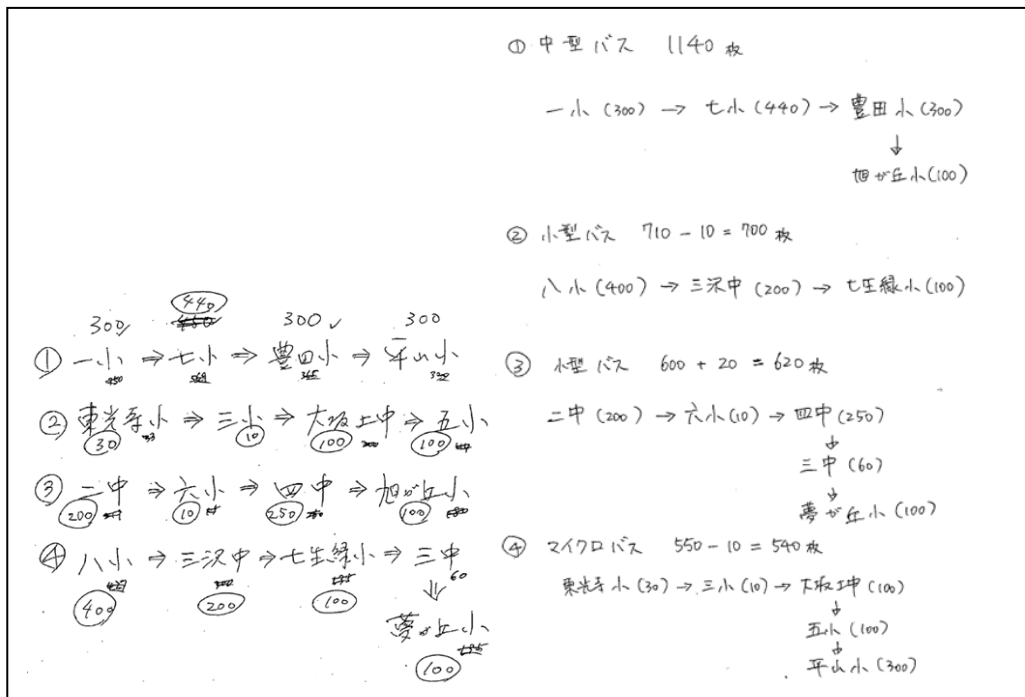 440
300 300 300
① 一小 ⇒ 七小 ⇒ 豊田小 ⇒ 平山小
② 東光寺小 ⇒ 三小 ⇒ 大坂上中 ⇒ 五小
30 10 100 100
③ 二中 ⇒ 六小 ⇒ 四中 ⇒ 旭が丘小
200 10 250 100
④ 八小 ⇒ 三沢中 ⇒ 七生緑小 ⇒ 三中
400 200 100 60
⇓
夢が丘小
100
① 中型バス 1140枚
一小(300) → 七小(440) → 豊田小(300)
↓
旭が丘小(100)
② 小型バス 710 - 10 = 700枚
八小(400) → 三沢中(200) → 七生緑小(100)
③ 小型バス 600 + 20 = 620枚
二中(200) → 六小(10) → 四中(250)
↓
三中(60)
↓
夢が丘小(100)
④ マイクロバス 550 - 10 = 540枚
東光寺小(30) → 三小(10) → 大坂上中(100)
↓
五小(100)
↓
平山小(300)